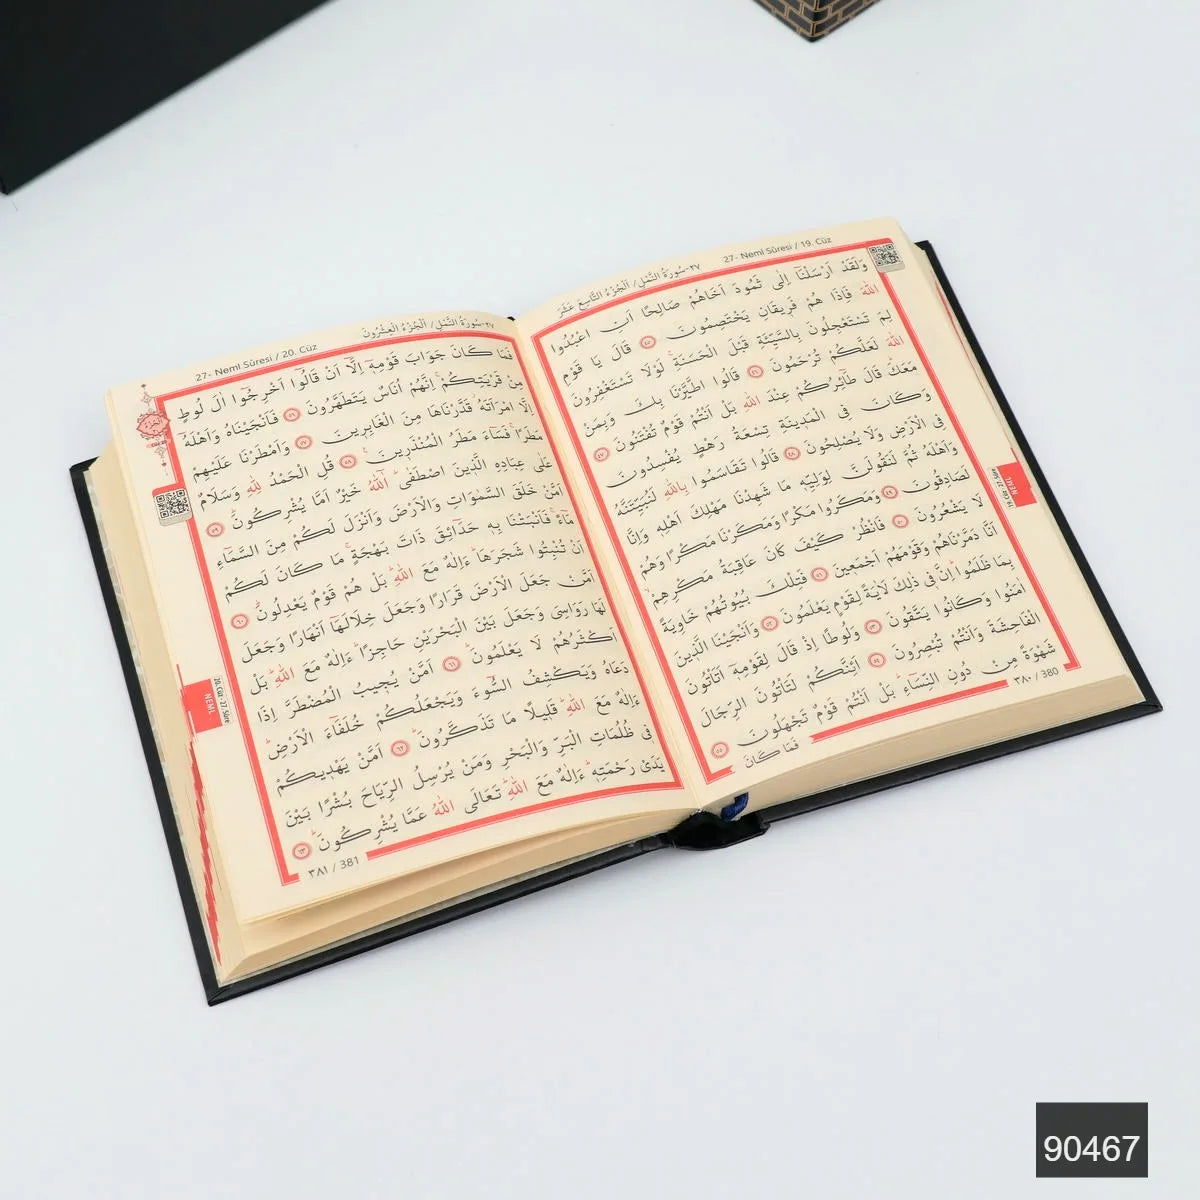 27- Neml Sûresi / 19. Cüz
٢٧-سُورَةُ النَّمْلِ / اَلْجُزْءُ التَّاسِعَ عَشَرَ
وَلَقَدْ اَرْسَلْنَٓا اِلٰى ثَمُودَ اَخَاهُمْ صَالِحًا اَنِ اعْبُدُوا
اللّٰهَ فَاِذَا هُمْ فَر۪يقَانِ يَخْتَصِمُونَ ٤٥ قَالَ يَا قَوْمِ
لِمَ تَسْتَعْجِلُونَ بِالسَّيِّئَةِ قَبْلَ الْحَسَنَةِۚ لَوْلَا تَسْتَغْفِرُونَ
اللّٰهَ لَعَلَّكُمْ تُرْحَمُونَ ٤٦ قَالُوا اطَّيَّرْنَا بِكَ وَبِمَنْ
مَعَكَۜ قَالَ طَٓائِرُكُمْ عِنْدَ اللّٰهِ بَلْ اَنْتُمْ قَوْمٌ تُفْتَنُونَ ٤٧
وَكَانَ فِي الْمَد۪ينَةِ تِسْعَةُ رَهْطٍ يُفْسِدُونَ
فِي الْاَرْضِ وَلَا يُصْلِحُونَ ٤٨ قَالُوا تَقَاسَمُوا بِاللّٰهِ لَنُبَيِّتَنَّهُ
وَاَهْلَهُ ثُمَّ لَنَقُولَنَّ لِوَلِيِّه۪ مَا شَهِدْنَا مَهْلِكَ اَهْلِه۪ وَاِنَّا
لَصَادِقُونَ ٤٩ وَمَكَرُوا مَكْرًا وَمَكَرْنَا مَكْرًا وَهُمْ
لَا يَشْعُرُونَ ٥٠ فَانْظُرْ كَيْفَ كَانَ عَاقِبَةُ مَكْرِهِمْۙ
اَنَّا دَمَّرْنَاهُمْ وَقَوْمَهُمْ اَجْمَع۪ينَ ٥١ فَتِلْكَ بُيُوتُهُمْ خَاوِيَةً
بِمَا ظَلَمُواۜ اِنَّ ف۪ي ذٰلِكَ لَاٰيَةً لِقَوْمٍ يَعْلَمُونَ ٥٢ وَاَنْجَيْنَا الَّذ۪ينَ
اٰمَنُوا وَكَانُوا يَتَّقُونَ ٥٣ وَلُوطًا اِذْ قَالَ لِقَوْمِه۪ٓ اَتَأْتُونَ
الْفَاحِشَةَ وَاَنْتُمْ تُبْصِرُونَ ٥٤ اَئِنَّكُمْ لَتَأْتُونَ الرِّجَالَ
شَهْوَةً مِنْ دُونِ النِّسَٓاءِۜ بَلْ اَنْتُمْ قَوْمٌ تَجْهَلُونَ ٥٥
فَمَا كَانَ
٣٨٠ / 380
NEML
19. Cüz - 27. Sûre
27- Neml Sûresi / 20. Cüz
٢٧-سُورَةُ النَّمْلِ / اَلْجُزْءُ الْعِشْرُونَ
فَمَا كَانَ جَوَابَ قَوْمِه۪ٓ اِلَّٓا اَنْ قَالُٓوا اَخْرِجُٓوا اٰلَ لُوطٍ
مِنْ قَرْيَتِكُمْۚ اِنَّهُمْ اُنَاسٌ يَتَطَهَّرُونَ ٥٦ فَاَنْجَيْنَاهُ وَاَهْلَهُٓ
اِلَّا امْرَاَتَهُۘ قَدَّرْنَاهَا مِنَ الْغَابِر۪ينَ ٥٧ وَاَمْطَرْنَا عَلَيْهِمْ
مَطَرًاۚ فَسَٓاءَ مَطَرُ الْمُنْذَر۪ينَ ٥٨ قُلِ الْحَمْدُ لِلّٰهِ وَسَلَامٌ
عَلٰى عِبَادِهِ الَّذ۪ينَ اصْطَفٰىۜ آٰللّٰهُ خَيْرٌ اَمَّا يُشْرِكُونَۜ ٥٩
اَمَّنْ خَلَقَ السَّمٰوَاتِ وَالْاَرْضَ وَاَنْزَلَ لَكُمْ مِنَ السَّمَٓاءِ
مَٓاءًۚ فَاَنْبَتْنَا بِه۪ حَدَٓائِقَ ذَاتَ بَهْجَةٍۚ مَا كَانَ لَكُمْ
اَنْ تُنْبِتُوا شَجَرَهَاۜ ءَاِلٰهٌ مَعَ اللّٰهِۜ بَلْ هُمْ قَوْمٌ يَعْدِلُونَۜ ٦٠
اَمَّنْ جَعَلَ الْاَرْضَ قَرَارًا وَجَعَلَ خِلَالَهَٓا اَنْهَارًا وَجَعَلَ
لَهَا رَوَاسِيَ وَجَعَلَ بَيْنَ الْبَحْرَيْنِ حَاجِزًاۜ ءَاِلٰهٌ مَعَ اللّٰهِۜ بَلْ
اَكْثَرُهُمْ لَا يَعْلَمُونَۜ ٦١ اَمَّنْ يُج۪يبُ الْمُضْطَرَّ اِذَا
دَعَاهُ وَيَكْشِفُ السُّٓوءَ وَيَجْعَلُكُمْ خُلَفَٓاءَ الْاَرْضِۜ
ءَاِلٰهٌ مَعَ اللّٰهِۜ قَل۪يلًا مَا تَذَكَّرُونَۜ ٦٢ اَمَّنْ يَهْد۪يكُمْ
ف۪ي ظُلُمَاتِ الْبَرِّ وَالْبَحْرِ وَمَنْ يُرْسِلُ الرِّيَاحَ بُشْرًا بَيْنَ
يَدَيْ رَحْمَتِه۪ۜ ءَاِلٰهٌ مَعَ اللّٰهِۜ تَعَالَى اللّٰهُ عَمَّا يُشْرِكُونَۜ ٦٣
٣٨١ / 381
NEML
20. Cüz - 27. Sûre
90467